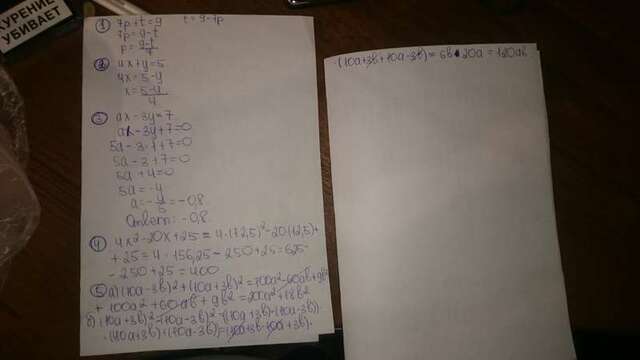 КУРЕНИЕ
УБИВАЕТ
① 7p+t=g t=g-7p
7p=g-t
p=(g-t)/7
② 4x+y=5
4x=5-y
x=(5-y)/4
③ ax-3y=7
ax-3y+7=0
5a-3·1+7=0
5a-3+7=0
5a+4=0
5a=-4
a=-4/5=-0,8
Ответ: -0,8
④ 4x²-20x+25=4·(12,5)²-20·(12,5)+
+25=4·156,25-250+25=625-
-250+25=400
⑤ а)(10a-3b)²+(10a+3b)²=100a²-60ab+9b²
+100a²+60ab+9b²=200a²+18b²
б)(10a+3b)²-(10a-3b)²=(10a+3b)-(10a-3b))·
·(10a+3b)+(10a-3b)=(10a+3b-10a+3b)·
·(10a+3b+10a-3b)=6b·20a=120ab